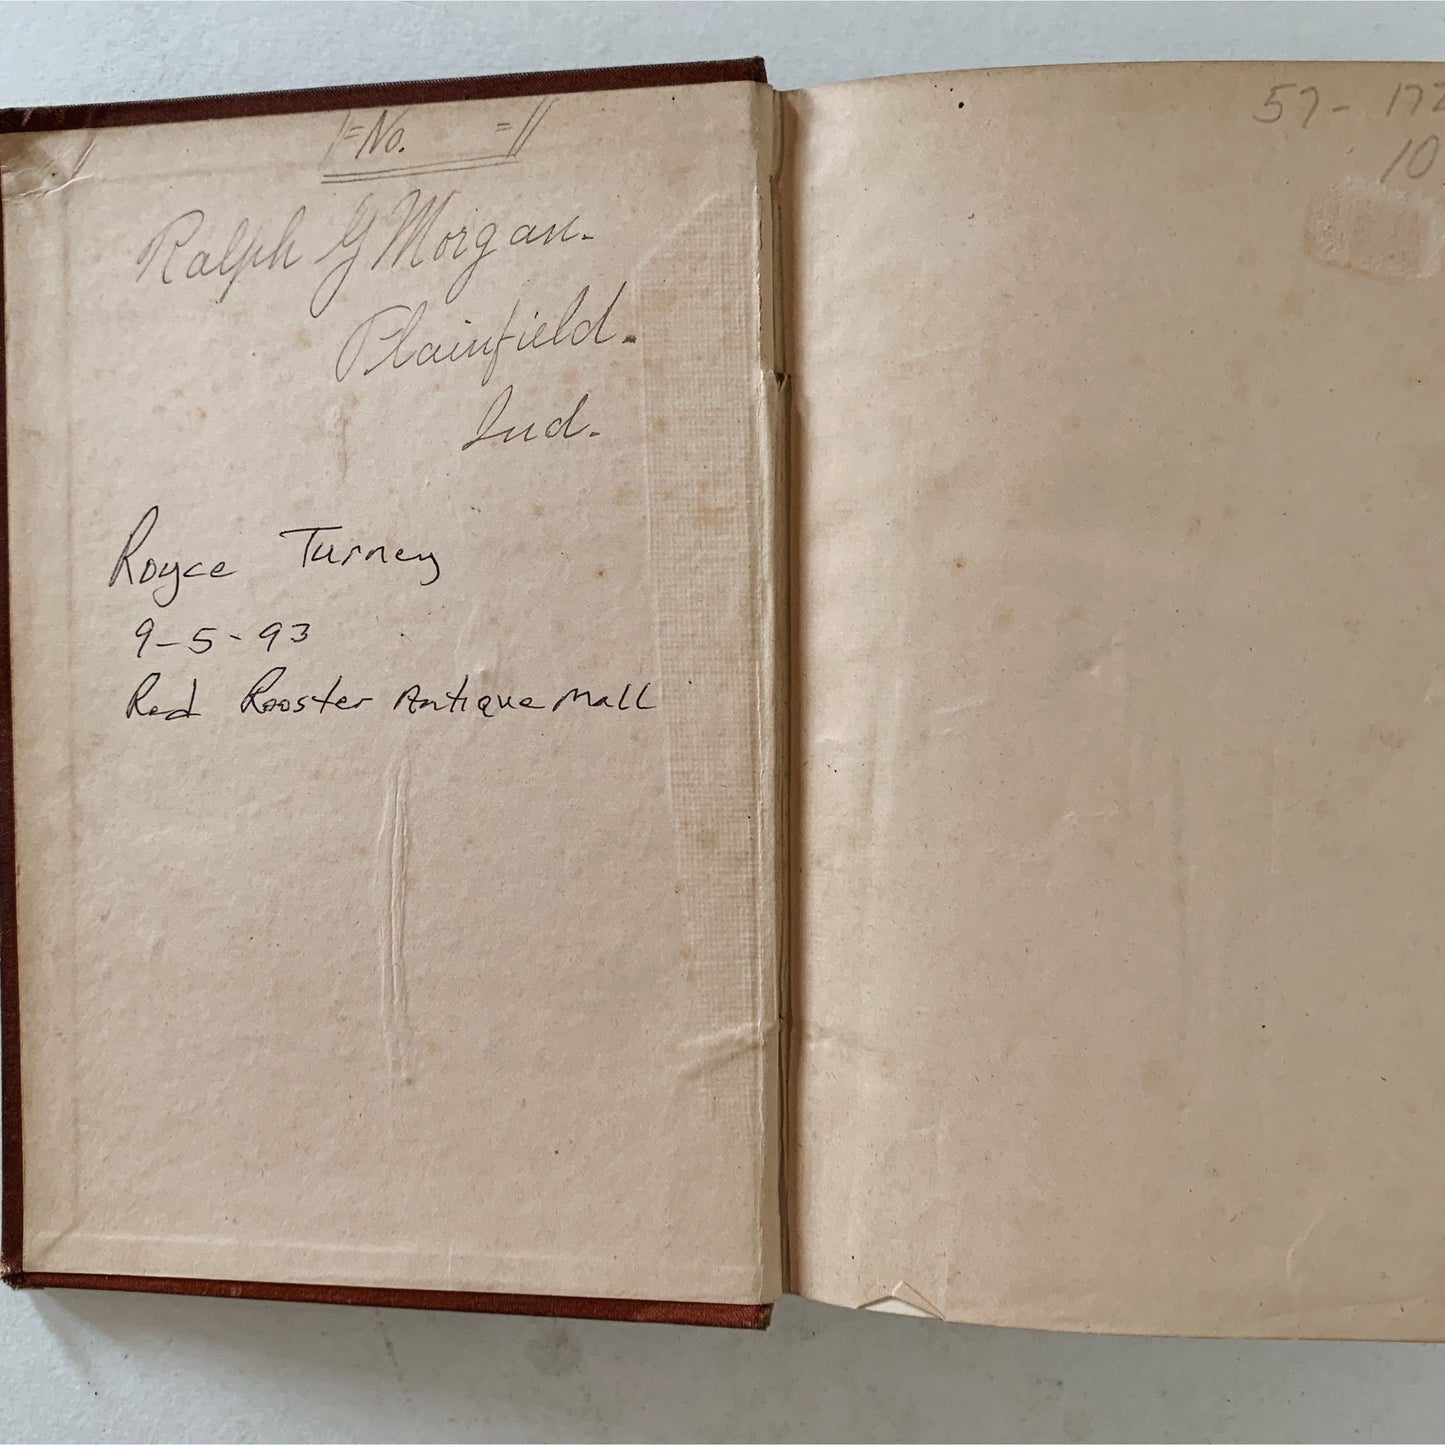 No.
Ralph G Morgan.
Plainfield.
Ind.
Royce Turney
9-5-93
Red Rooster Antique Mall
57-172
10